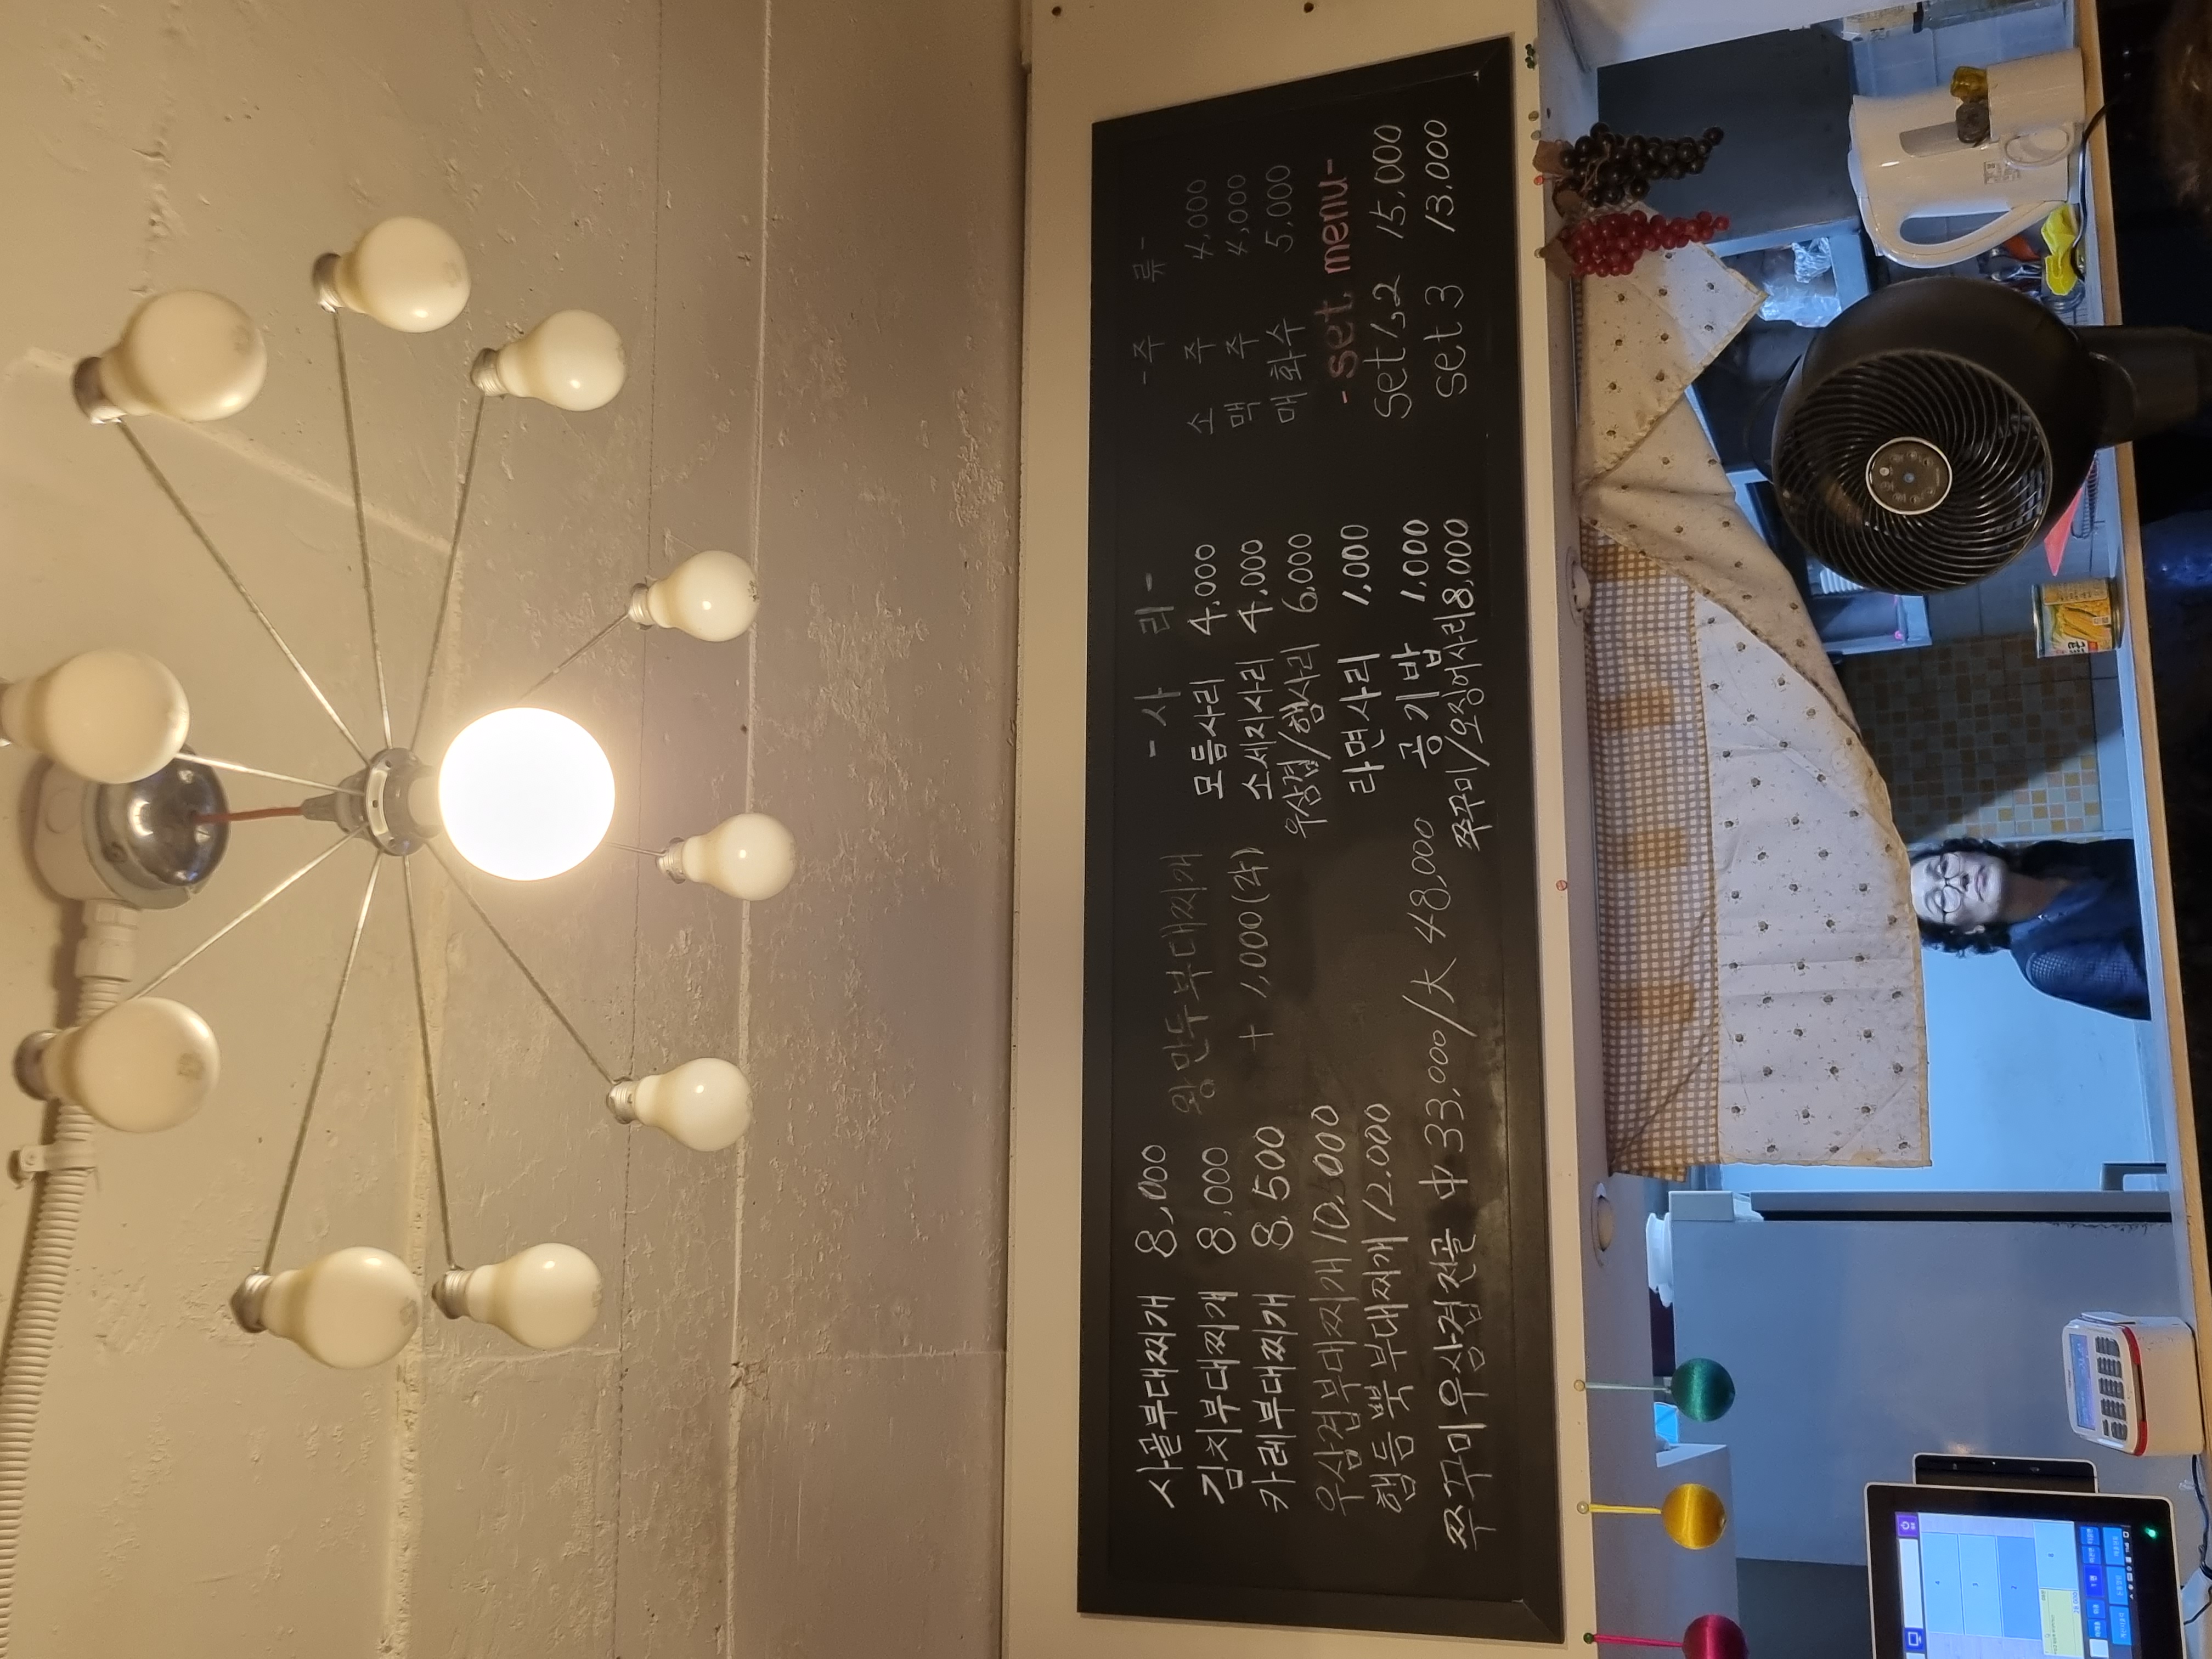 사골부대찌개 8,000
김치부대찌개 8,000
카레부대찌개 8,500
우삼겹부대찌개 10,000
햄듬뿍부대찌개 12.000
쭈꾸미우삼겹전골 中 33,000/大 48,000
왕만두부대찌개
+ 1,000(각)
-사 리-
모듬사리 4,000
소세지사리 4,000
우삼겹/햄사리 6,000
라면사리 1,000
공기밥 1,000
쭈꾸미/오징어사리 8,000
-주 류-
소 주 4,000
맥 주 4,000
매화수 5,000
-set menu-
set 1,2 15,000
set 3 13,000